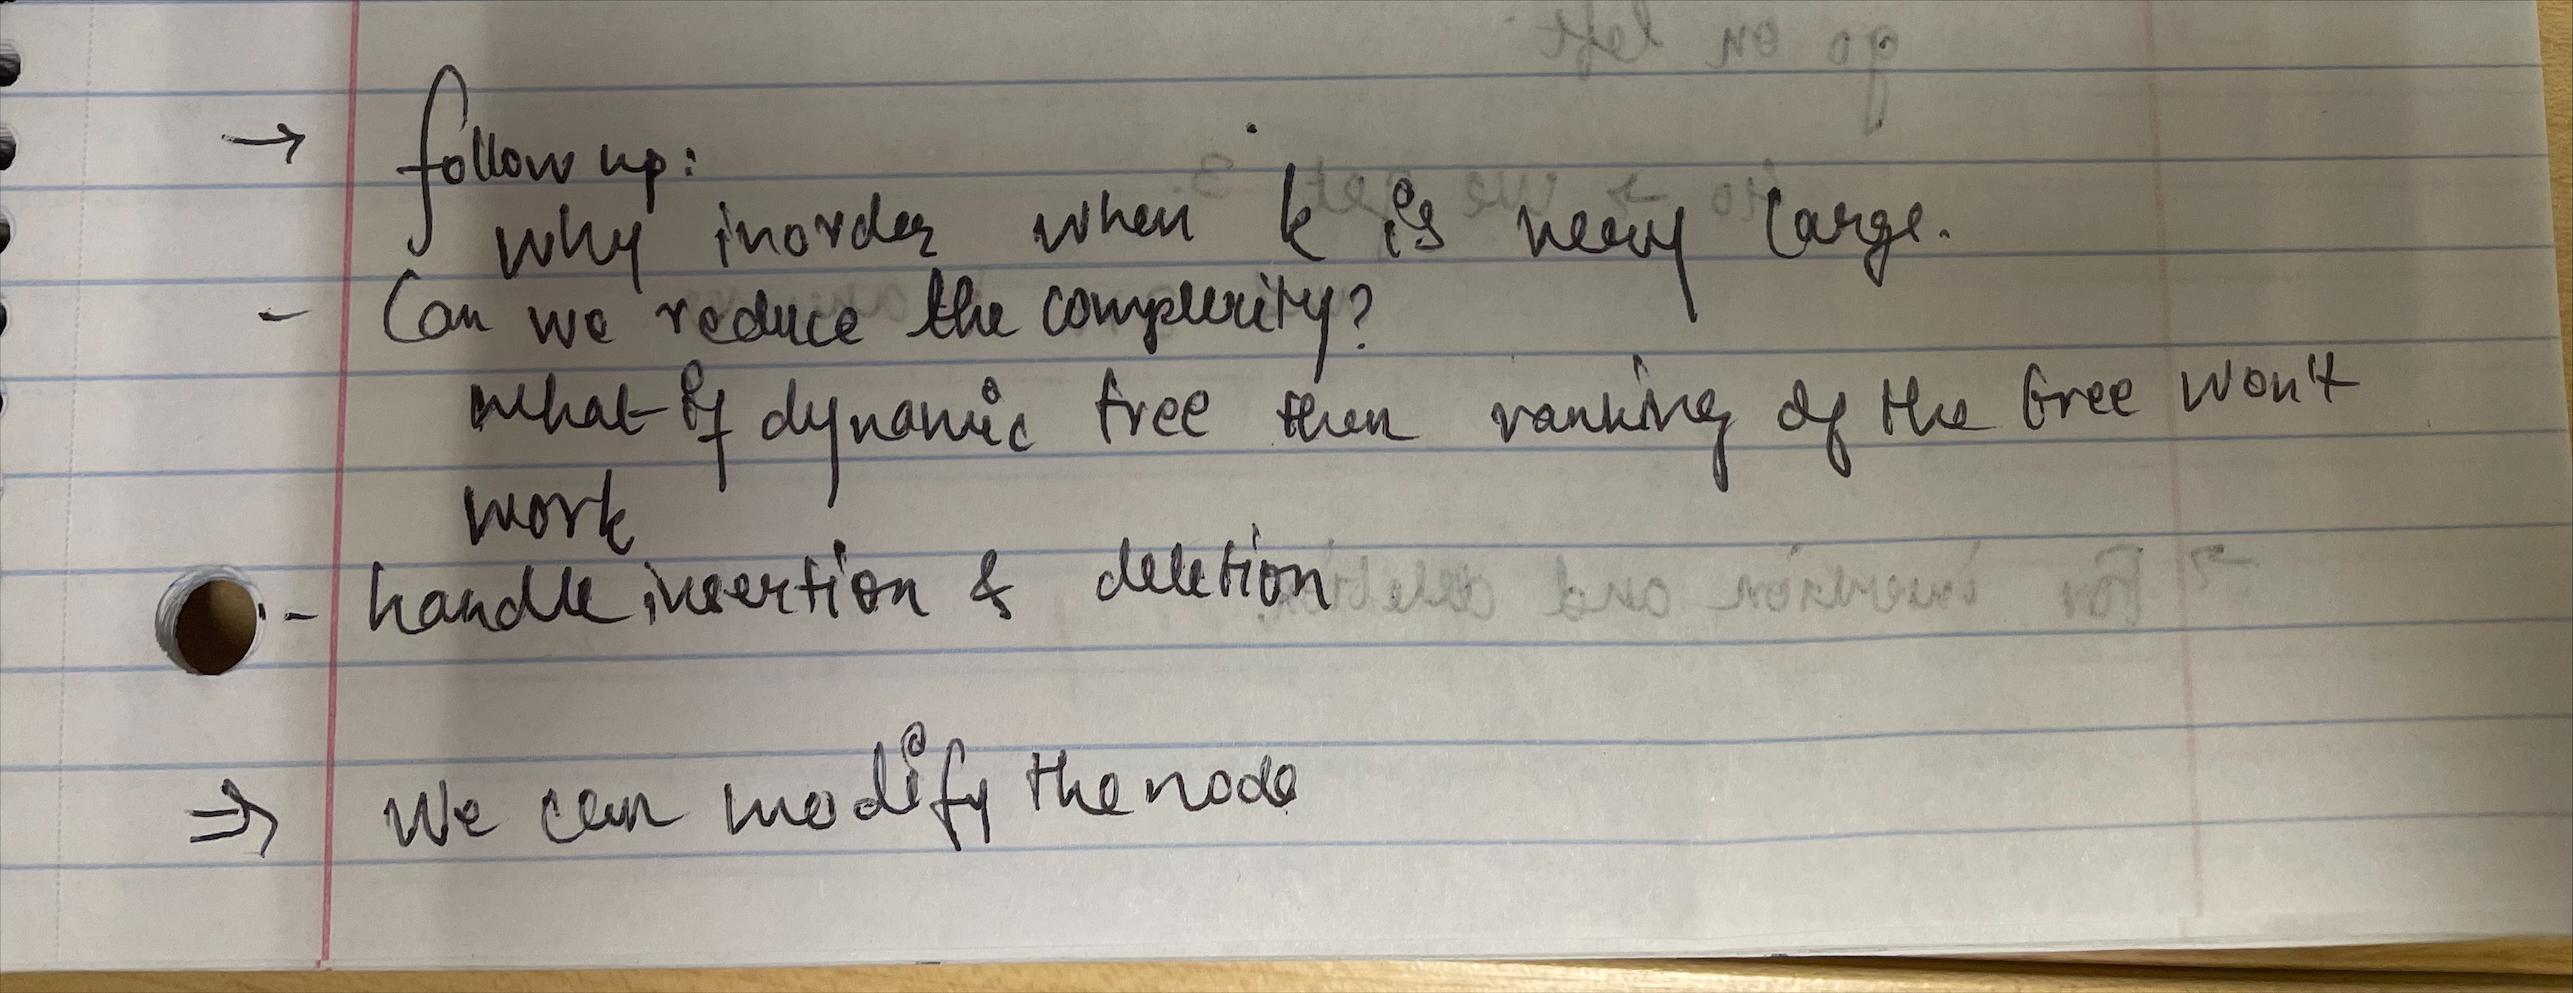 → follow up:
why inorder when k is very large.
- Can we reduce the complexity?
what if dynamic tree then ranking of the tree won't
work
- handle insertion & deletion
⇒ We can modify the node